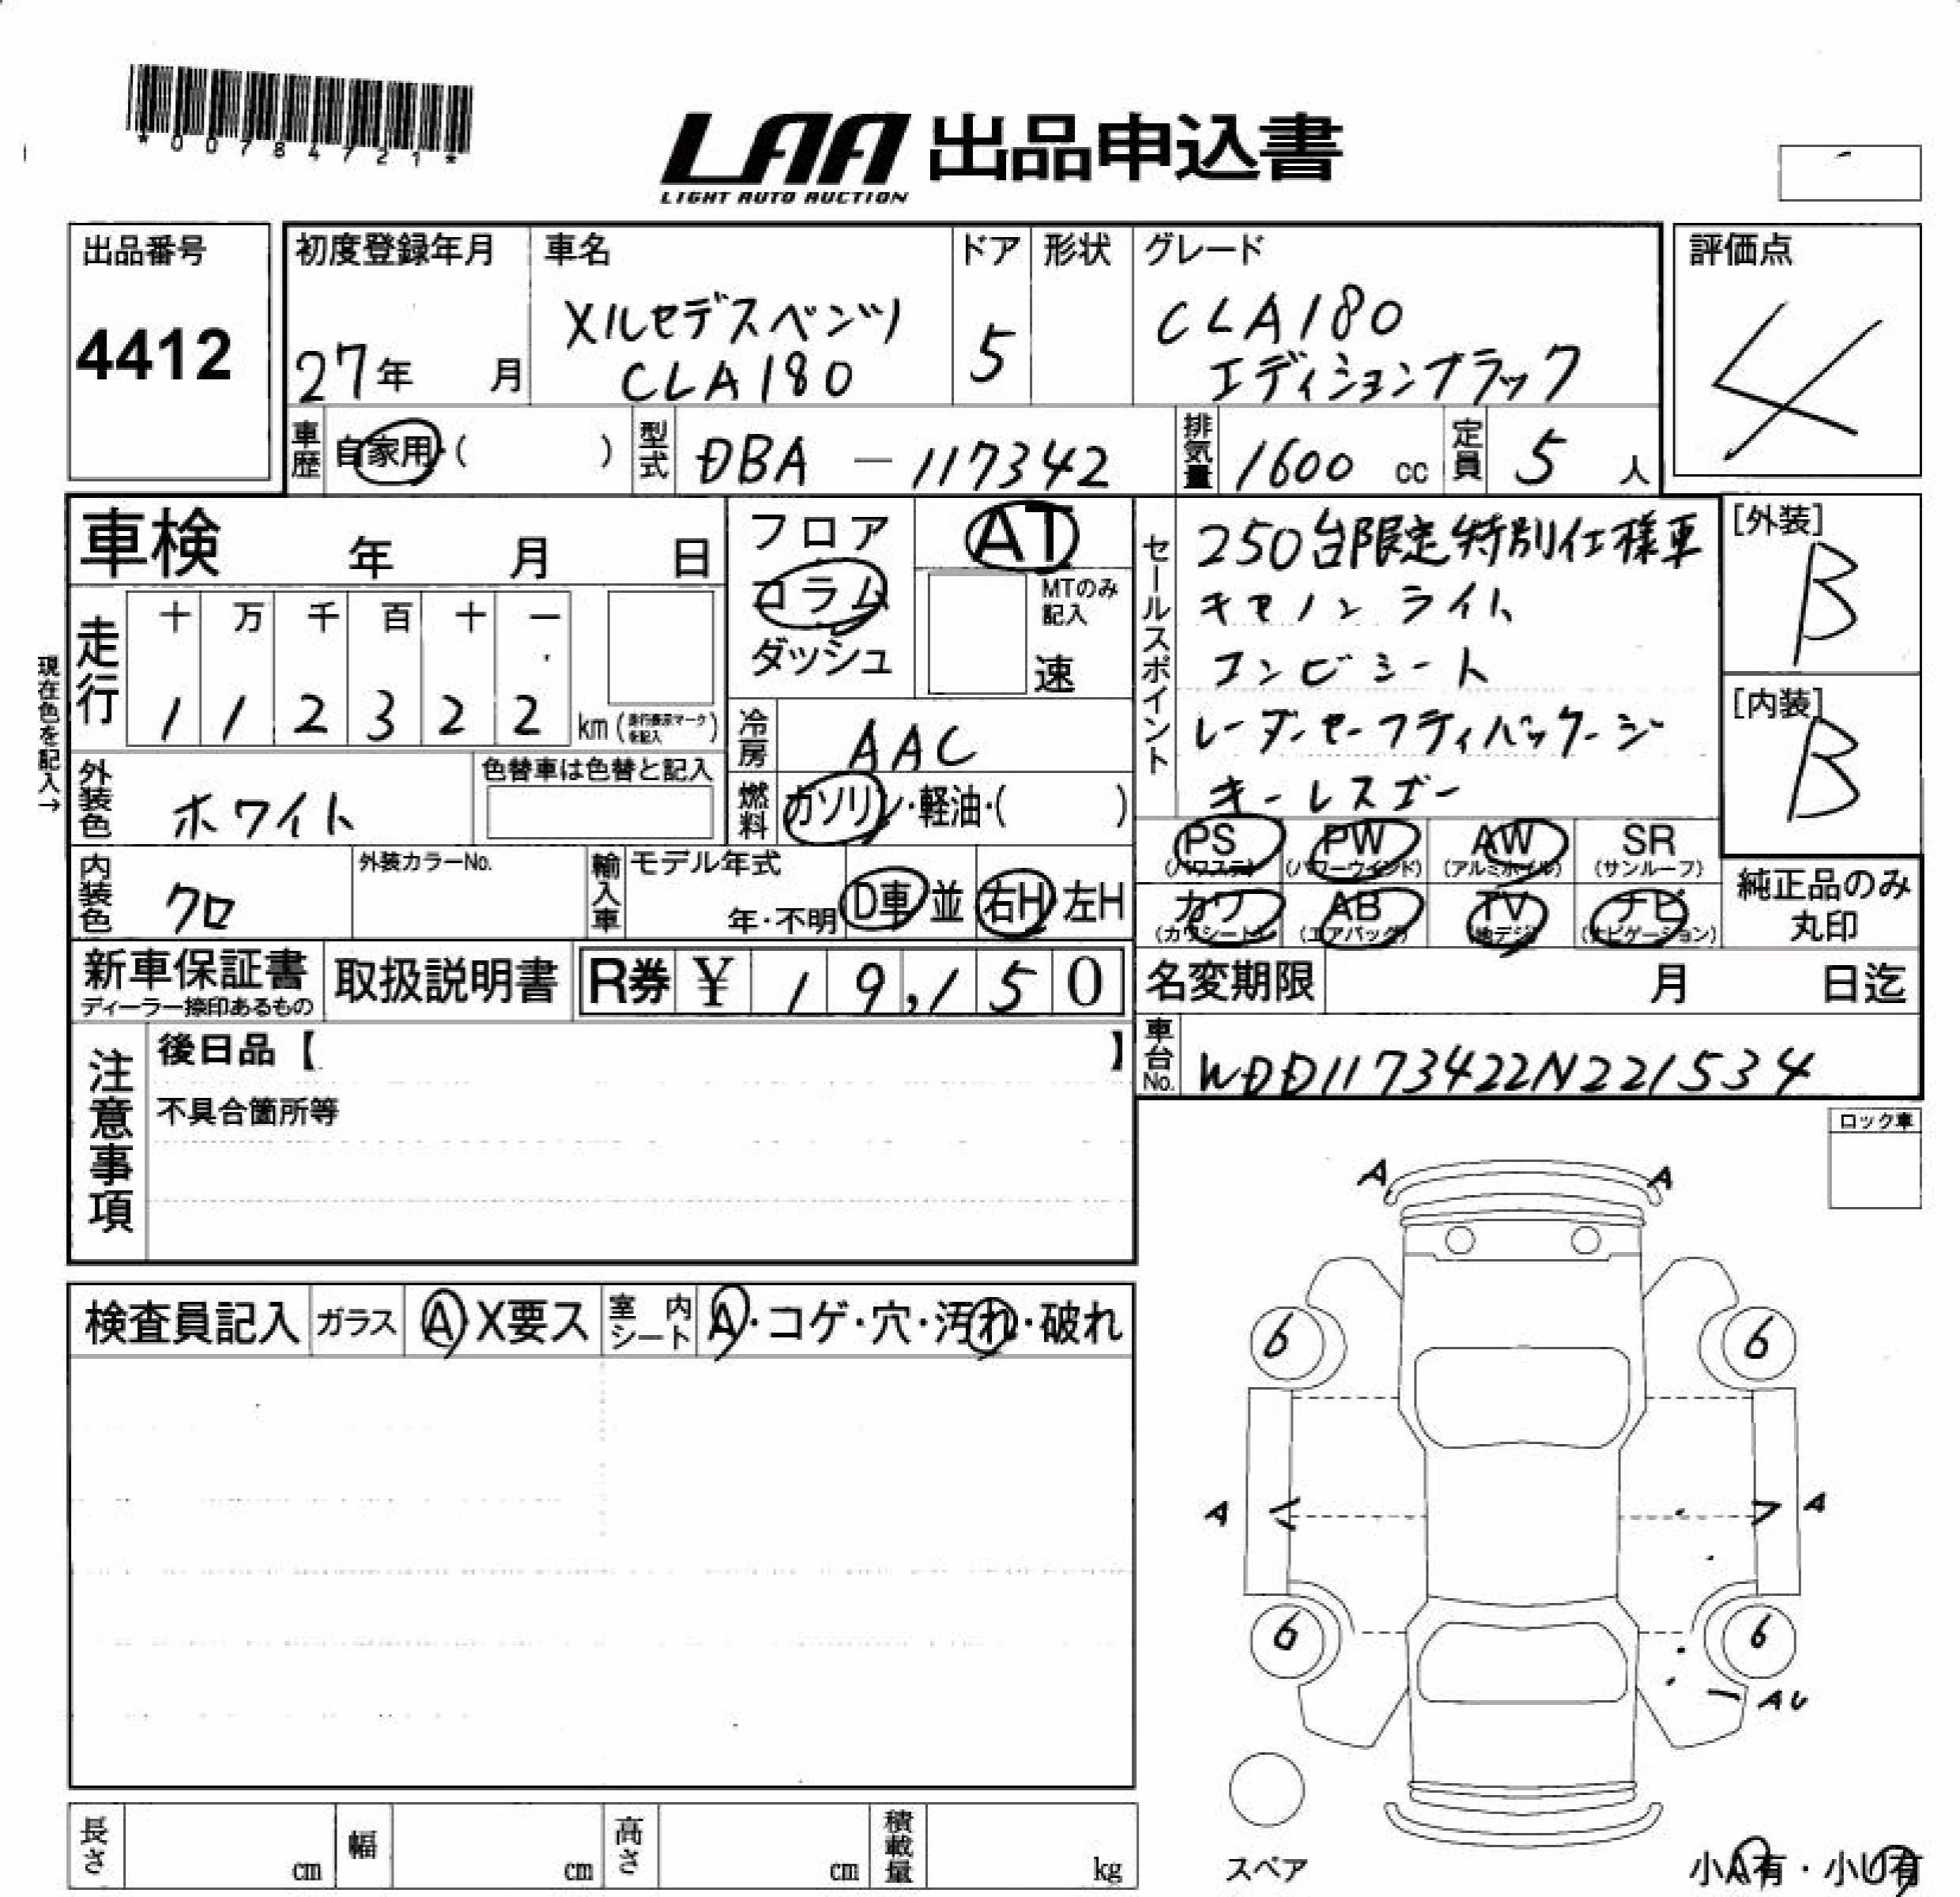 *00784721*
LAA 出品申込書
LIGHT AUTO AUCTION
出品番号
4412
初度登録年月
27年 月
車名
メルセデスベンツ
CLA180
ドア
5
形状
グレード
CLA180
エディションブラック
評価点
4
車歴
自家用・( )
型式
DBA - 117342
排気量
1600 cc
定員
5 人
車検 年 月 日
フロア
コラム
ダッシュ
AT
MTのみ
記入
速
セールスポイント
250台限定特別仕様車
キセノンライト
コンビシート
レーダーセーフティパッケージ
キーレスゴー
[外装]
B
[内装]
B
現在色を記入→
走行
十 万 千 百 十 一
1 1 2 3 2 2 km
冷房
AAC
外装色
ホワイト
色替車は色替と記入
燃料
ガソリン・軽油・( )
PS
(パワステ)
PW
(パワーウインド)
AW
(アルミホイル)
SR
(サンルーフ)
カワ
(カワシート)
AB
(エアバッグ)
TV
(地デジ)
ナビ
(ナビゲーション)
純正品のみ
丸印
内装色
クロ
外装カラーNo.
輸入車
モデル年式
年・不明
D車 並
右H 左H
新車保証書
ディーラー捺印あるもの
取扱説明書
R券 ¥ 19,150
名変期限 月 日迄
車台No.
WDD1173422N221534
注意事項
後日品【 】
不具合箇所等
ロック車
A A
検査員記入
ガラス
A X要ス
室内シート
A・コゲ・穴・汚れ・破れ
6 6
A A
6 6
AU
スペア
長さ cm
幅 cm
高さ cm
積載量 kg
小A有・小U有